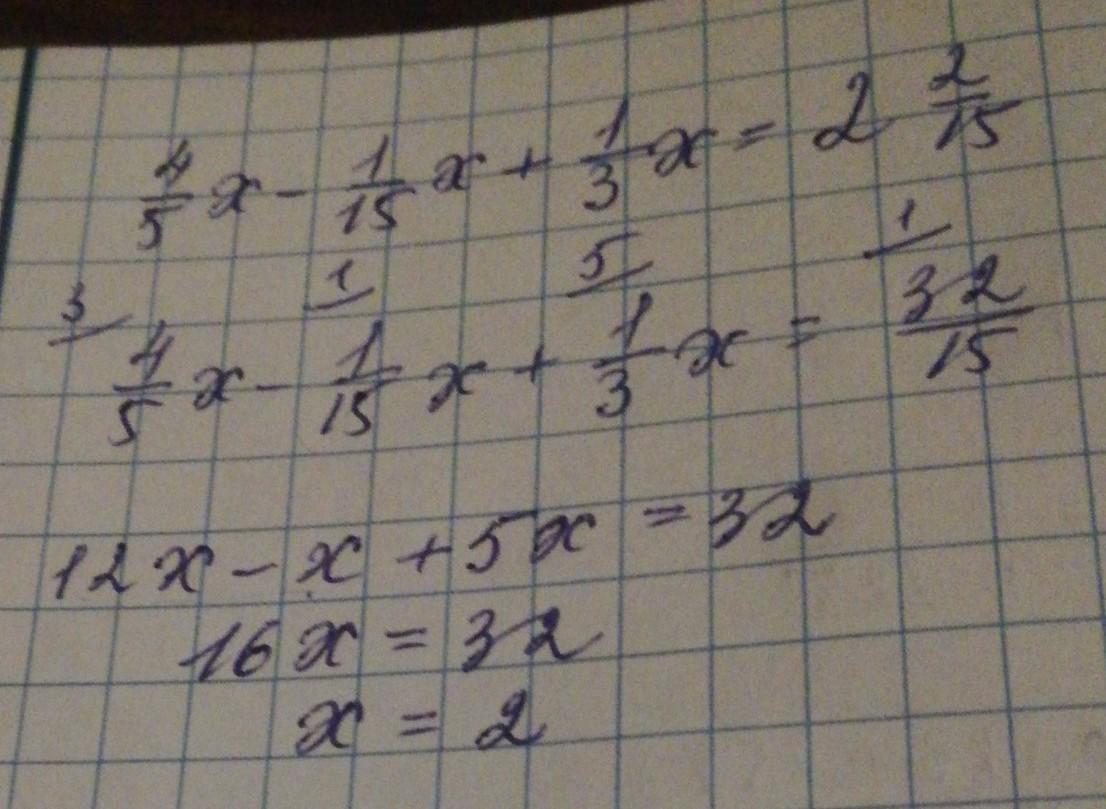 4/5 x - 1/15 x + 1/3 x = 2 2/15
3 1 5 1
4/5 x - 1/15 x + 1/3 x = 32/15
12x - x + 5x = 32
16x = 32
x = 2